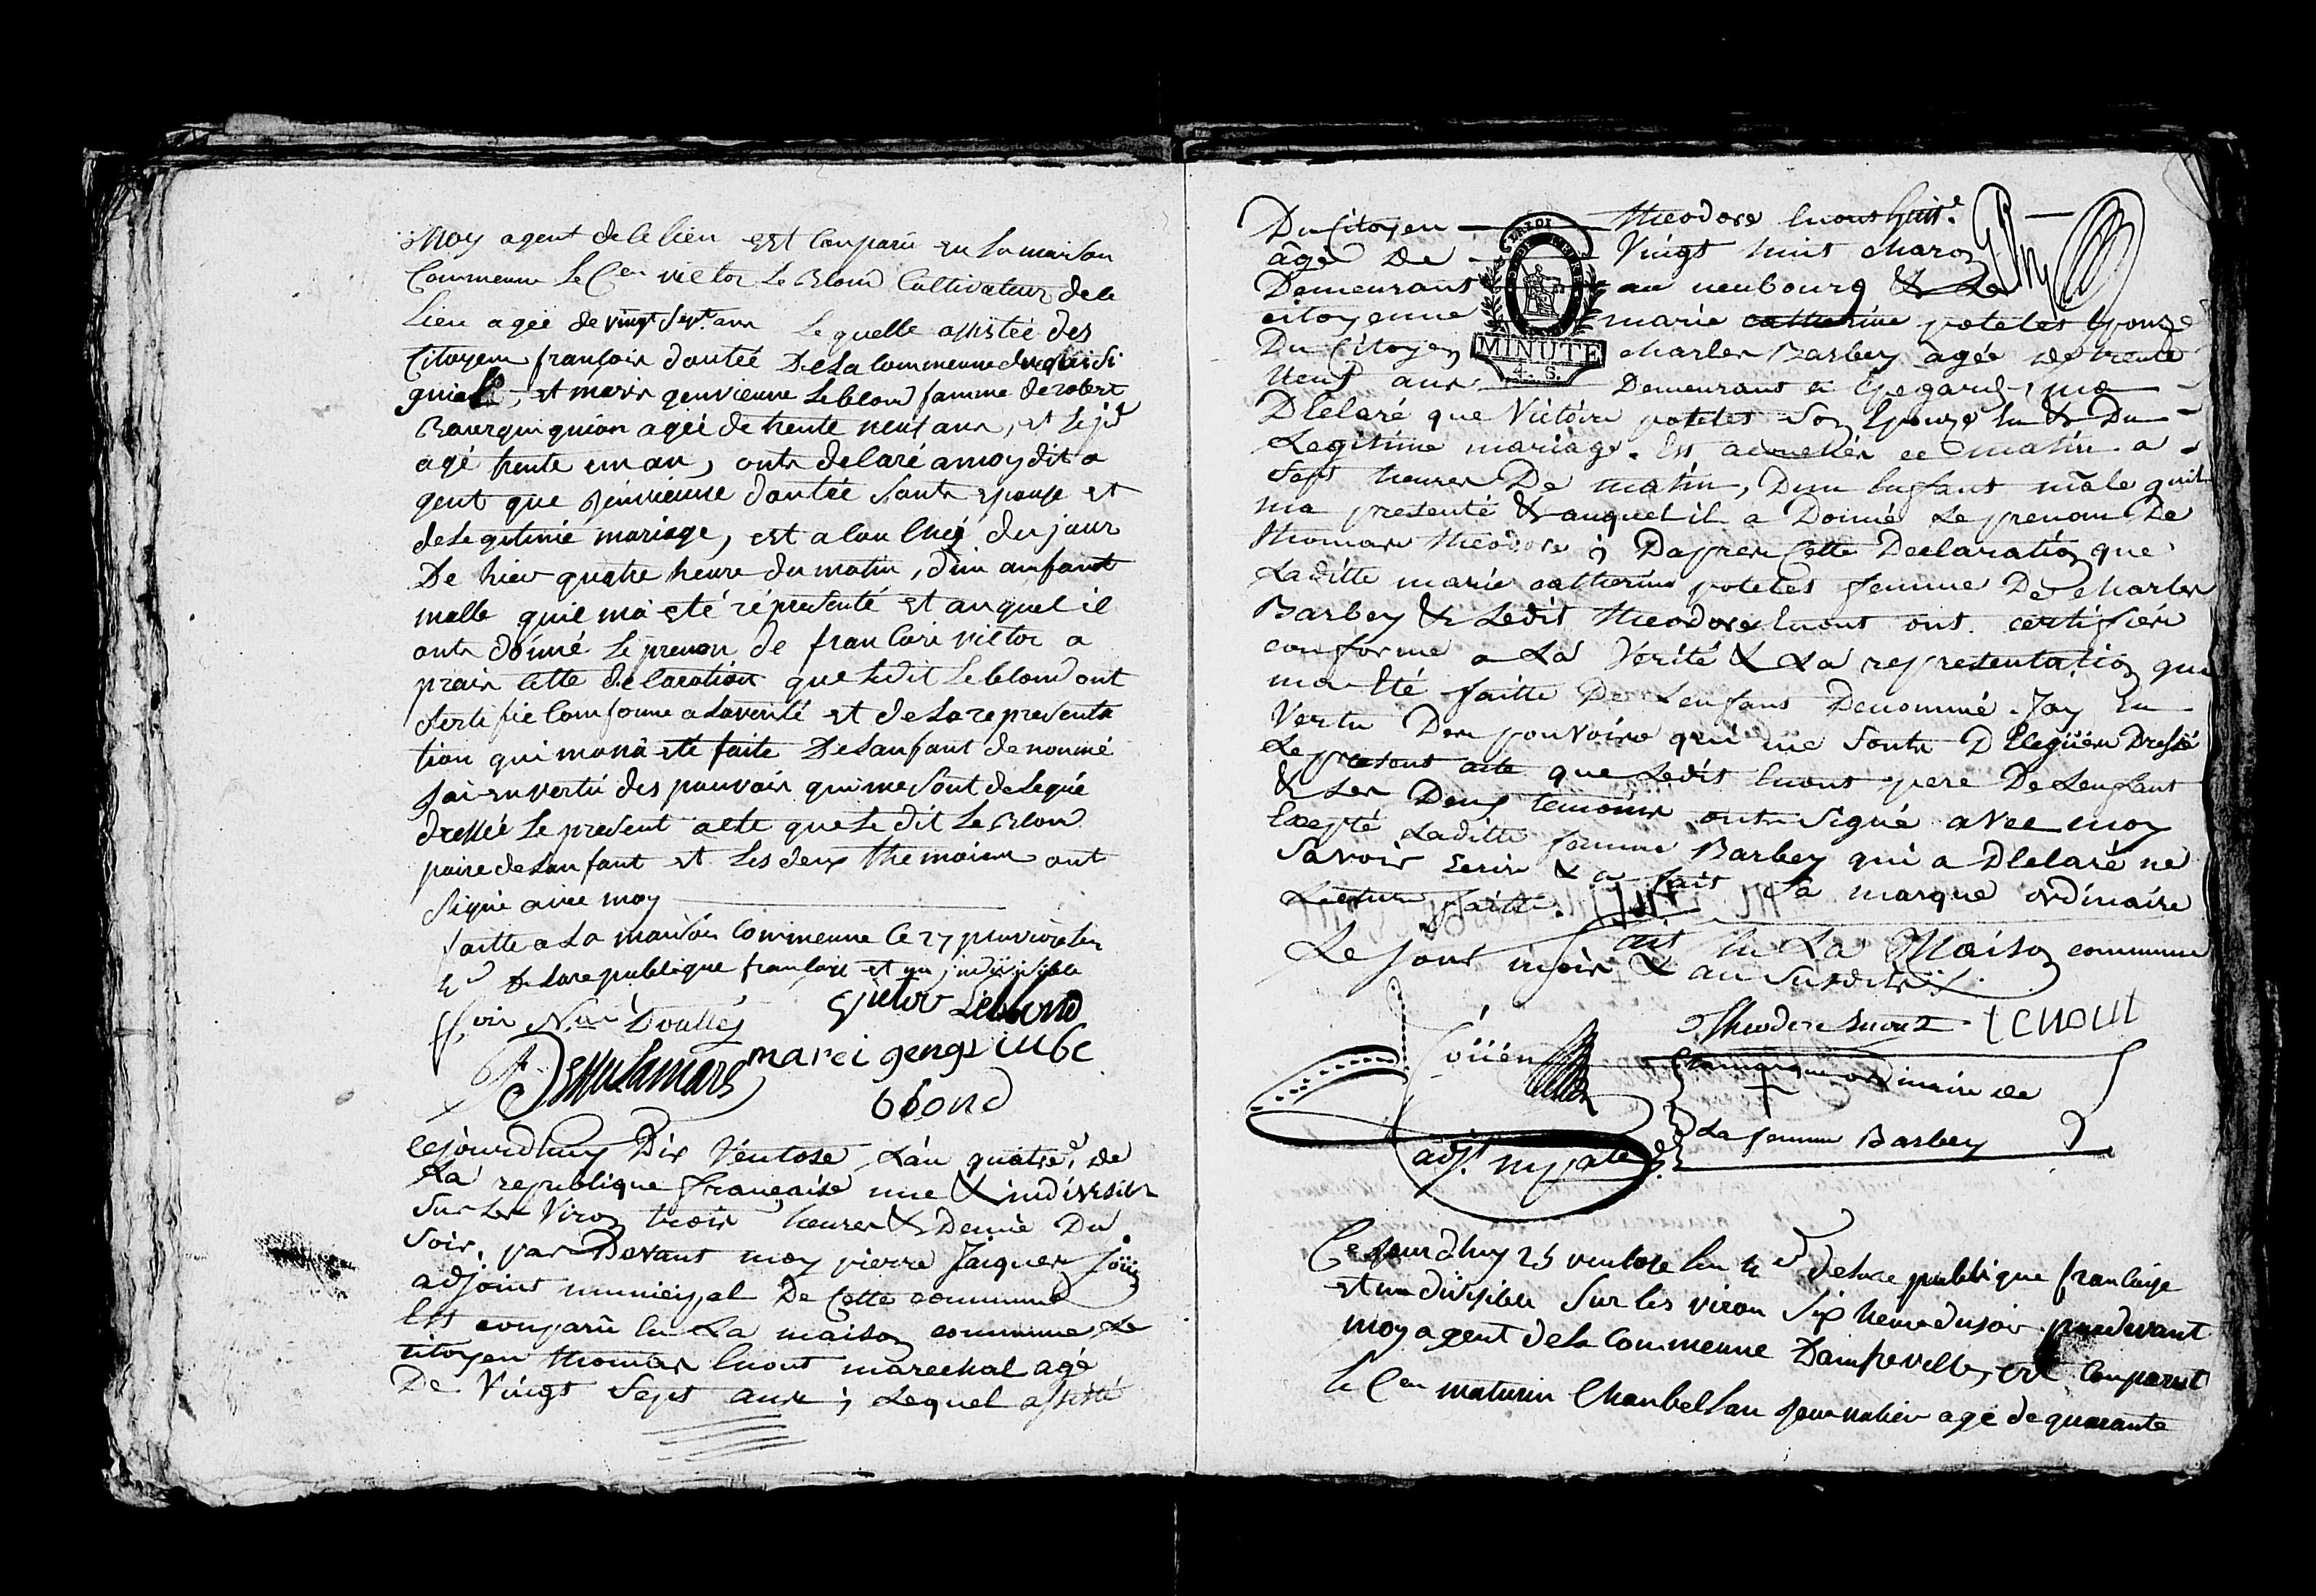 Moy agent de le lieu est Comparü en la maison
Commeune Le Cen victor Le Blond Cultivateur de le
Lieu agée de vingt sept ans Le quelle assistée des
Citoyens francois doutée De la Commeune
et marie genvieune Leblond famme de robert
agée de trente neuf ans, et le pr
agé trente un an, onts delaré a moy dit a
gent que Génvieuve doutée sonts Epouse et
de Legitimé mariage, est a Couchéz du jour
De hier quatre heure du matin, d'un anfant
malle qui m'a eté réprésenté et auquel il
onts donné Le prenon de francois victor a
prais cette declaration que Ledit Leblond ont
Sertifié Comforme a La verité et de La represanta
tion qui mana eté faite De Lanfant denommé
Jai en vertü des pouvoir qui me sont delegué
dressée Le present acte que Le dit Le Blond
paire de Lanfant et Les deux themoiens ont
Signé avec moy
faitte a La maison Commeune Ce 27 pluviose Len
4e De La republique francoise et un indivisible
victor Leblond
marei
blond
Cejourdhuy Dix Ventose Lan quatre.e de
La republique française une & indivisible
Sur Les Viron trois heures & Demie Du
Soir, par Devant moy pierre Jacques
adjoint municipal De Cette commune
Est comparü En La maison commune Le
citoyen thomas Enout marechal agé
De Vingt Sept ans; Lequel assisté
Du Citoyen Theodore Enout
âgé De Vingt huit charon
Demeurant au neubourg & De La
citoyenne marie catherine poteles Epouze
Du Citoyen charles Barbey agée de trente
neuf ans Demeurant a Epegard, m'a
DEclaré que Victoire poteles Son Epouze En & Du
Legitime mariage. Est acouchée ce matin a
Sept heures De matin, D'un Enfant mâle quil
ma presenté & auquel il a Donné Le prenom De
thomas theodore; D'apres Cette Declaration que
Laditte marie catherine poteles femme De charles
Barbey & Ledit theodore Enout ont certifiés
conforme a La Verité & La representation qui
ma Eté faitte De Lenfant Denommé. Jay En
Vertu Des pouvoirs qui me Sonts DElegüés Dressé
Le present acte que Ledit Enout pere De Lenfant
& Les Deux temoins onts Signé avec moy
Excepté Laditte femme Barbey qui a DEclaré ne
Savoir Ecrire & a fait Sa marque ordinaire
Lecture faitte.
fait En La Maison commune
Le jour mois & an Susdits
Theodore Enout t Enout
La marque ordinaire de
La femme Barbey
adjt mpale
MINUTE
4. S.
Cejourdhuy 25 ventose Len 4e de La republique francaise
et un divisible Sur les viron Six heure du soir pardevant
moy agent de La Commeune Dampreville, est Comparut
Le Cen maturin Chanbellan journalier agé de quarante